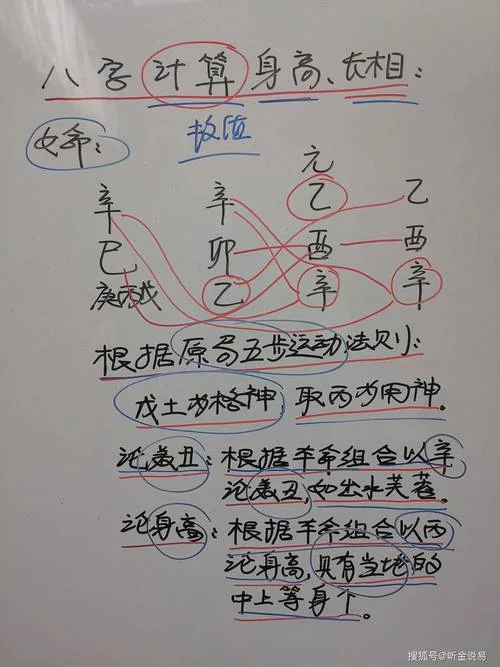 八字计算身高、长相:
数值
女命:
元
辛 辛 乙 乙
巳 卯 酉 酉
庚丙戊 乙 辛 辛
根据原命五步运动法则:
戊土为格神,取丙为用神。
论美丑:根据本命组合以辛
论美丑,如出水芙蓉。
论身高:根据本命组合以丙
论身高,只有当地的
中上等身个。
搜狐号@听金说易